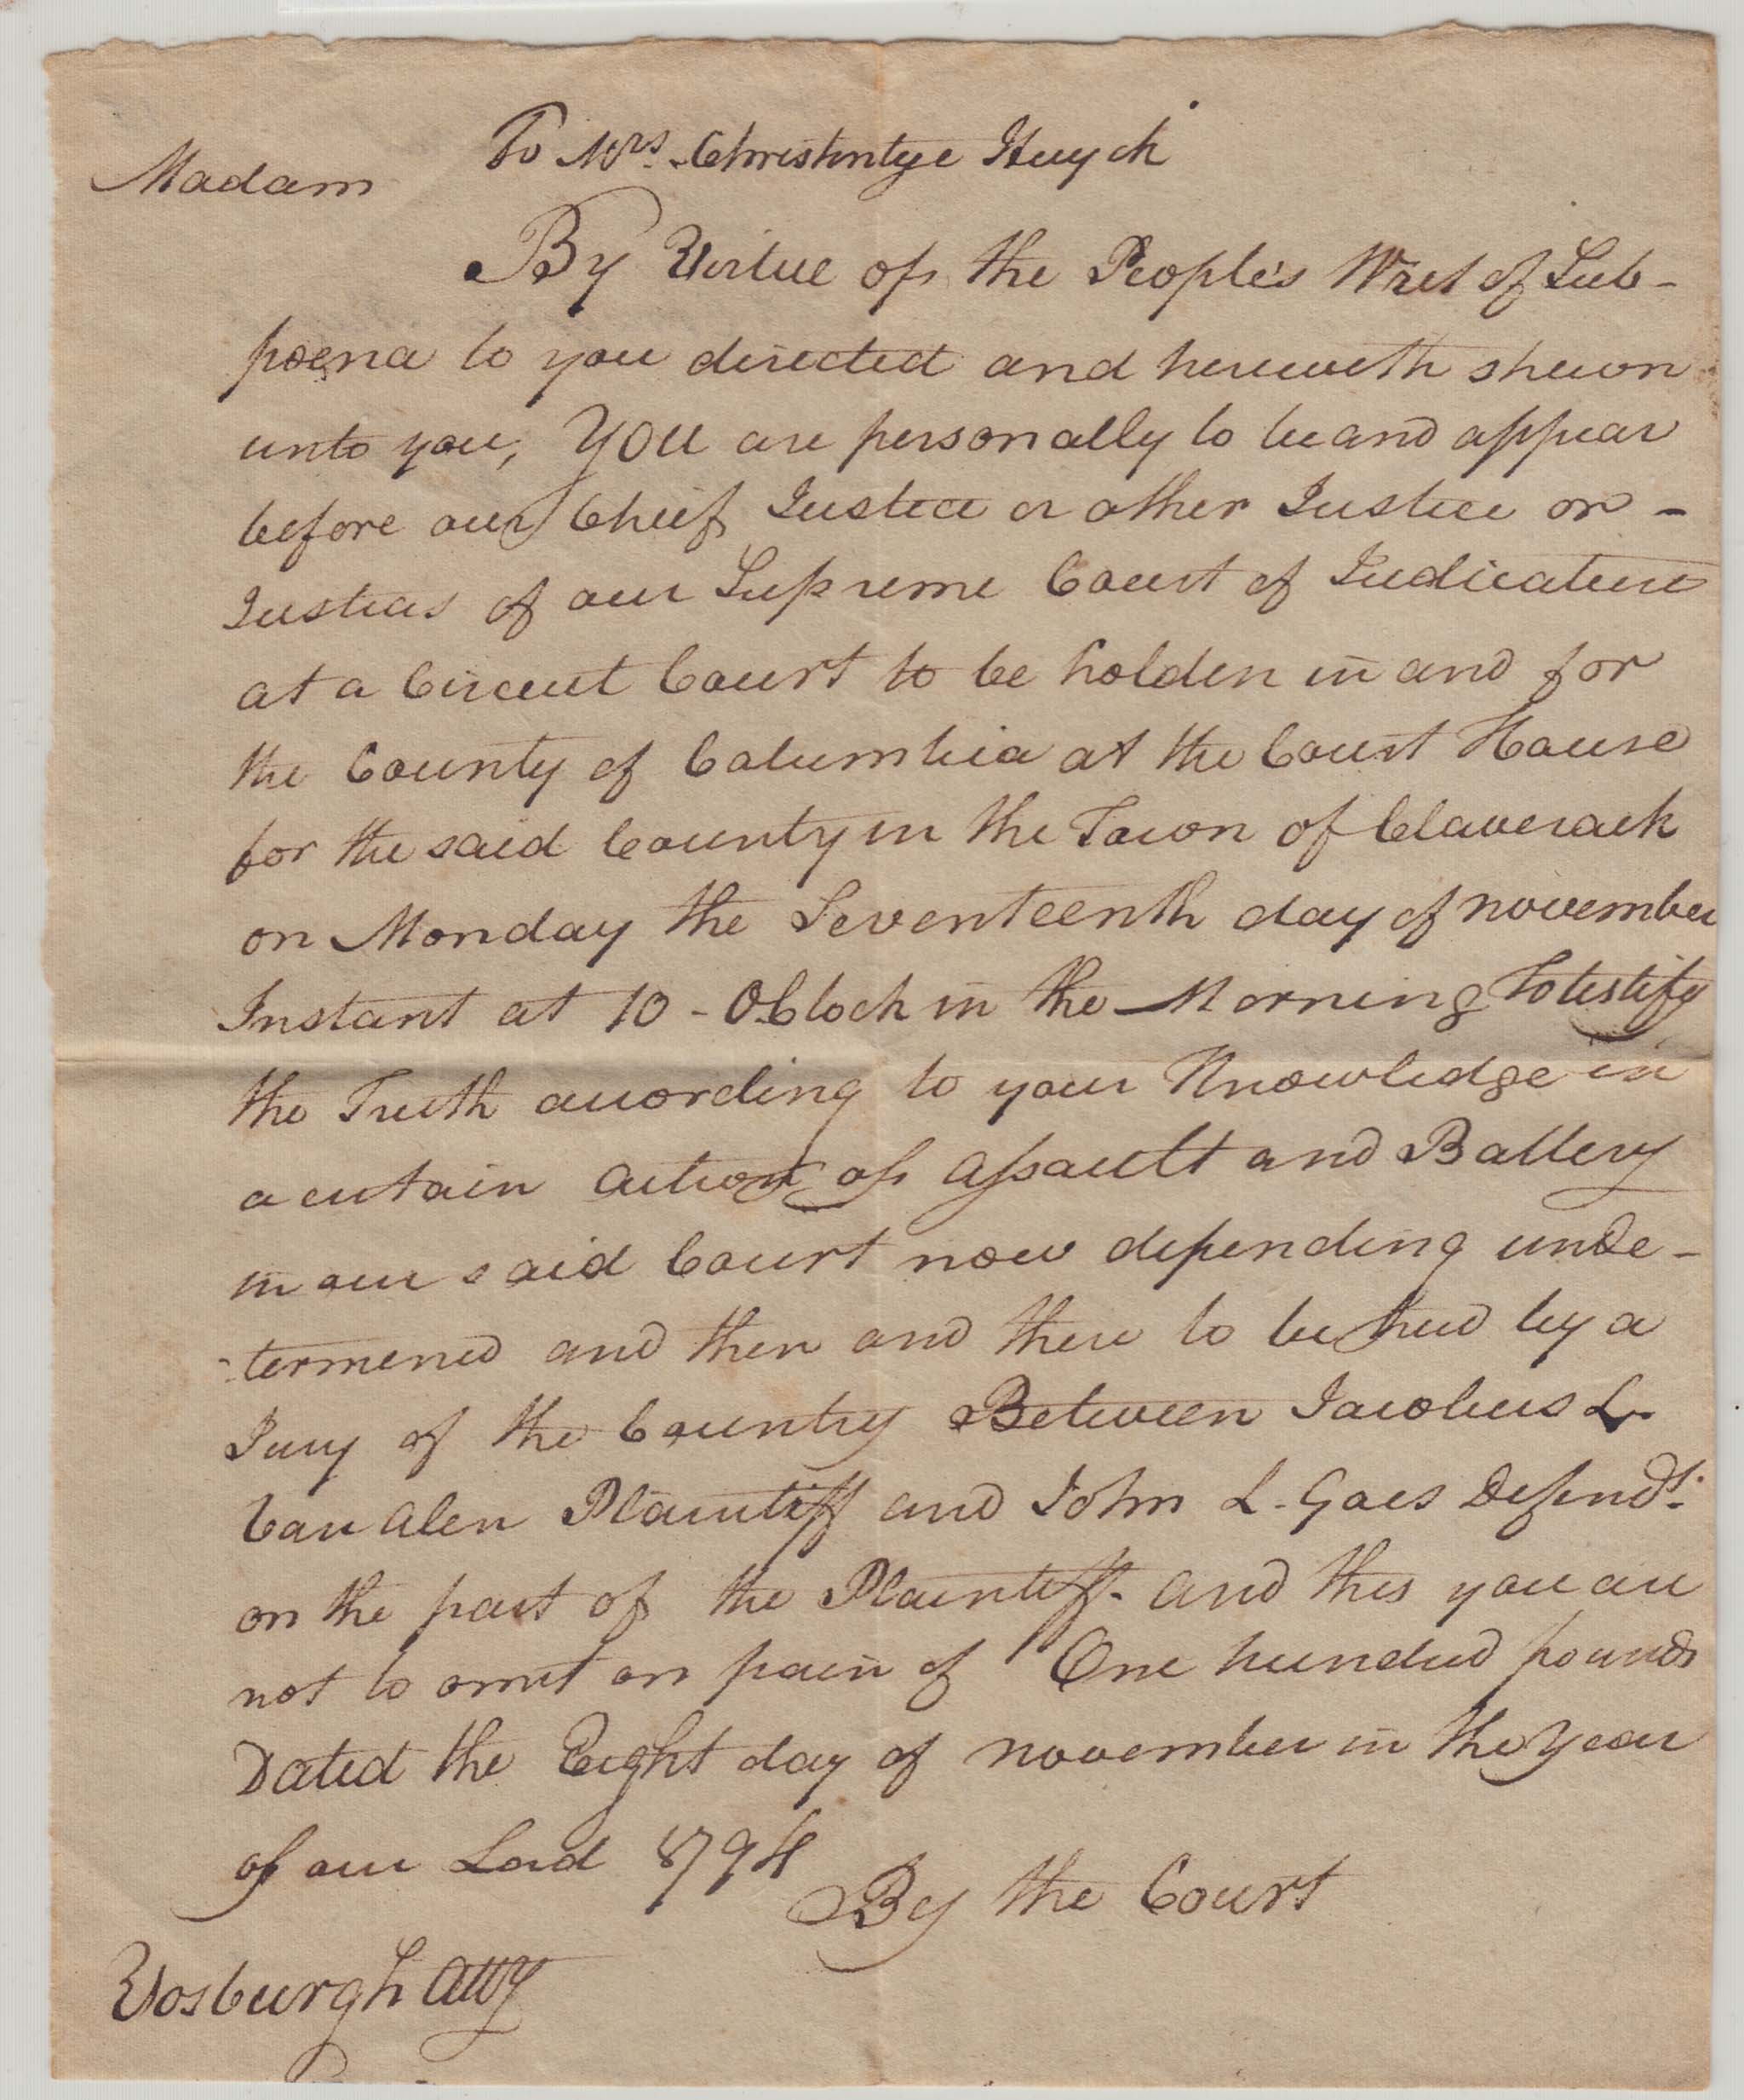 To Mrs. Christintye Huyck
Madam
By Virtue of the People's Writ of Sub-
poena to you directed and herewith shewn
unto you, You are personally to be and appear
before our Chief Justice or other Justice or -
Justices of our Supreme Court of Judicature
at a Circuit Court to be holden in and for
the County of Columbia at the Court House
for the said County in the Town of Claverack
on Monday the Seventeenth day of november
Instant at 10 - OClock in the Morning To testify
the Truth according to your Knowledge in
a certain action of assault and Battery
in our said Court now depending unde-
-termened and then and there to be tried by a
Jury of the Country Between Jacobus L.
Van Alen Plaintiff and John L. Goes Defendt.
on the part of the Plaintiff. and this you are
not to omit on pain of One hundred pounds
Dated the Eight day of november in the Year
of our Lord 1794
By the Court
Vosburgh atty